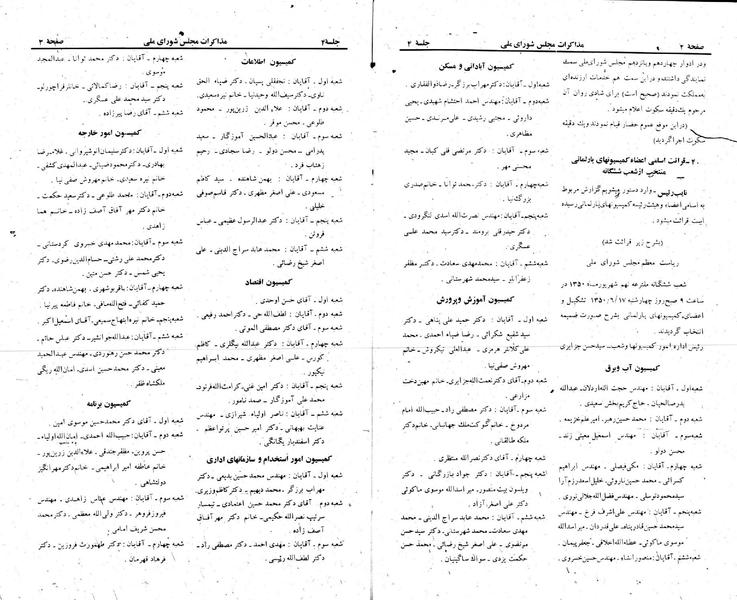 صفحه ۲
مذاکرات مجلس شورای ملی
جلسه ۲
ودر ادوار چهاردهم وپانزدهم مجلس شورای ملی سمت
نمایندگی داشتند و دراین سمت هم خدمات ارزنده‌ای
به مملکت نمودند (صحیح است) برای شادی روان آن
مرحوم یک دقیقه سکوت اعلام میشود.
(دراین موقع عموم حضار قیام نمودند ویک دقیقه
سکوت اجرا گردید)
۲- قرائت اسامی اعضاء کمیسیونهای پارلمانی
منتخب از شعب ششگانه
نایب رئیس - وارد دستور میشویم گزارش مربوط
به اسامی اعضاء وهیئت رئیسه کمیسیونهای پارلمانی رسیده
است قرائت میشود.
(بشرح زیر قرائت شد)
ریاست معظم مجلس شورای ملی
شعب ششگانه مقترعه نهم شهریورماه ۱۳۵۰
ساعت ۹ صبح روز چهارشنبه ۱۳۵۰/۶/۱۷ تشکیل و
اعضای کمیسیونهای پارلمانی بشرح صورت ضمیمه
انتخاب گردیدند.
رئیس اداره امور کمیسیونها وشعب - سیدحسن جزایری
کمیسیون آب وبرق
شعبه اول - آقایان: مهندس حجت الله اردلان - عبدالله
بدرصالحیان - حاج کریم بخش سعیدی.
شعبه دوم - آقایان: محمدحسن رهبر - امیرعلم خزیمه.
شعبه سوم - آقایان: مهندس اسمعیل معینی زند -
محسن دولو.
شعبه چهارم - آقایان: مکی فیصلی - مهندس ابراهیم
کسرائی - محمدحسین نارویی - خلیل اسعدرزم آرا
سیدمحمود توسلی - مهندس فضل الله جلالی نوری.
شعبه پنجم - آقایان: مهندس علی اشرف فرخ - مهندس
سیدمحمدحسین قادرپناه - علی قدردان - میراسدالله
موسوی ماکوئی - عطاءالله اخلاقی - جعفرپیمان.
شعبه ششم - آقایان: منصور انشاء - مهندس حسین خسروی.
کمیسیون آبادانی و مسکن
شعبه اول - آقایان: دکتر مهراب بزرگر - رضا ذوالفقاری.
شعبه دوم - آقایان: مهندس احمد احتشام شهیدی - یحیی
داروئی - مجتبی رشیدی - علی مرندی - حسین
مظاهری.
شعبه سوم - آقایان: دکتر مرتضی قنی کبان - مجید
محسنی مهر.
شعبه چهارم - آقایان: دکتر محمد توانا - خانم صدری
بزرگ نیا.
شعبه پنجم - آقایان: مهندس نصرت الله اسدی لنگرودی -
دکتر حیدرقلی برومند - دکتر سید محمد علمی
عسگری.
شعبه ششم - آقایان: محمدمهدی سعادت - دکتر مظفر
زعفرانلو - سیدمحمد شهرستانی.
کمیسیون آموزش وپرورش
شعبه اول - آقایان: دکتر حمید علی پناهی - دکتر
سیدشفیع شکرائی - رضا ضیاء احمدی - محمد
علی کلانتر هرمزی - عبدالعلی نیکروش - خانم
مهروش صفی نیا.
شعبه دوم - آقایان: دکتر نعمت الله جزایری - خانم مهین دخت
مزارعی.
شعبه سوم - آقایان: دکتر مصطفی راد - حبیب الله امام
مردوخ - خانم گوکت ملک جهانبانی - خانم دکتر
ملکه طالقانی.
شعبه چهارم - آقای دکتر نصرالله منتظری.
شعبه پنجم - آقایان: دکتر جواد بازرگانی - دکتر
ویلسون بیت منصور - میراسدالله موسوی ماکوئی
دکتر علی اصغر آزاد.
شعبه ششم - آقایان: محمد عابد سراج الدینی - محمد
مهدی سعادت - محمد شهرستانی - دکتر سیدحسن
موثقوی - علی اصغر شیخ رضائی - محمد حسن
حکمت یزدی - سواک ساگینیان.
جلسه ۲
مذاکرات مجلس شورای ملی
صفحه ۳
کمیسیون اطلاعات
شعبه اول - آقایان: نجفقلی پسیان - دکتر ضیاء الحق
ناوی - دکتر سیف الله وحیدنیا - خانم نیره سعیدی.
شعبه دوم - آقایان: علاء الدین زرین پور - محمود
طلوعی - محسن موقر.
شعبه سوم - آقایان: عبدالحسین آموزگار - سعید
پدرامی - محسن دولو - رضا سجادی - رحیم
زهتاب فرد.
شعبه چهارم - آقایان: بهمن شاهنده - سید کاظم
مسعودی - علی اصغر مظهری - دکتر قاسم صوفی
خلیلی.
شعبه پنجم - آقایان: دکتر عبدالرسول عظیمی - عباس
فروتن.
شعبه ششم - آقایان: محمد عابد سراج الدینی - علی
اصغر شیخ رضائی.
کمیسیون اقتصاد
شعبه اول - آقای حسن اوحدی.
شعبه دوم - آقایان: لطف الله حی - دکتر احمد رفیعی.
شعبه سوم - آقای دکتر مصطفی الموتی.
شعبه چهارم - آقایان: دکتر عبدالله بیگلری - کاظم
کورس - علی اصغر مظهری - محمد ابراهیم
نیکپور.
شعبه پنجم - آقایان: دکتر امین غنی - کرامت الله فرنود -
محمد علی آموزگار - صمد نامور.
شعبه ششم - آقایان: ناصر اولیاء شیرازی - مهندس
عنایت بهبهانی - دکتر امیر حسین پرتو اعظم -
دکتر اسفندیار یگانگی.
کمیسیون امور استخدام و سازمانهای اداری
شعبه اول - آقایان: مهندس محمد حسین بدیعی - دکتر
مهراب بزرگر - محمد دیهیم - دکتر کاظم وزیری.
شعبه دوم - آقای دکتر محمد حسین اعتمادی - تیمسار
سرتیپ نصرالله حکیمی - خانم دکتر مهر آفاق
آصف زاده.
شعبه سوم - آقایان: مهدی احمد - دکتر مصطفی راد -
دکتر لطف الله رئیسی.
شعبه چهارم - آقایان: دکتر محمد توانا - عبدالمجد
موسوی.
شعبه پنجم - آقایان: رضا کمالائی - خانم فراچورلو
دکتر سید محمد علی عسگری.
شعبه ششم - آقای رضا پیرزاد.
کمیسیون امور خارجه
شعبه اول - آقایان: دکتر سلیمان انوشیروانی - غلامرضا
بهادری - دکتر محمود ضیائی - عبدالمهدی کشفی.
خانم نیره سعیدی - خانم مهروش صفی نیا.
شعبه دوم - آقایان: محمد طلوعی - دکتر سعید حکمت -
خانم دکتر مهر آفاق آصف زاده - خانم هما
زاهدی.
شعبه سوم - آقایان: محمد مهدی خسروی کردستانی -
دکتر محمد علی رشتی - حسام الدین رضوی - دکتر
یحیی شمس - دکتر حسن متین.
شعبه چهارم - آقایان: باقر بوشهری - بهمن شاهنده - دکتر
حمید کفائی - فتح الله مافی - خانم فاطمه پیرنیا.
شعبه پنجم - خانم نیره ابتهاج سمیعی - آقای اسمعیل اکبر.
شعبه ششم - آقایان: عبدالله جوانشیر - دکتر عباس حاتم -
دکتر محمد حسن رهنوردی - مهندس عبدالحمید
معینی - دکتر محمدحسین اسدی - امان الله ریگی
ملکشاه ظفر.
کمیسیون برنامه
شعبه اول - آقای دکتر محمد حسین موسوی امین.
شعبه دوم - آقایان: حبیب الله احمدی - امان الله اولیاء -
حسن پروین - مظفر جندقی - علاء الدین زرین پور -
خانم عاطفه امیر ابراهیمی - خانم دکتر مهرانگیز
دولتشاهی.
شعبه سوم - آقایان: مهندس عباس زاهدی - مهندس
فیروز فروهر - دکتر ولی الله معظمی - دکتر محمد
محسن شریف امامی.
شعبه چهارم - آقایان: دکتر طهمورث فروزین - دکتر
فرهاد قهرمان.